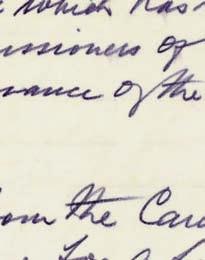 which has
ssioners of
nance of the
om the Can